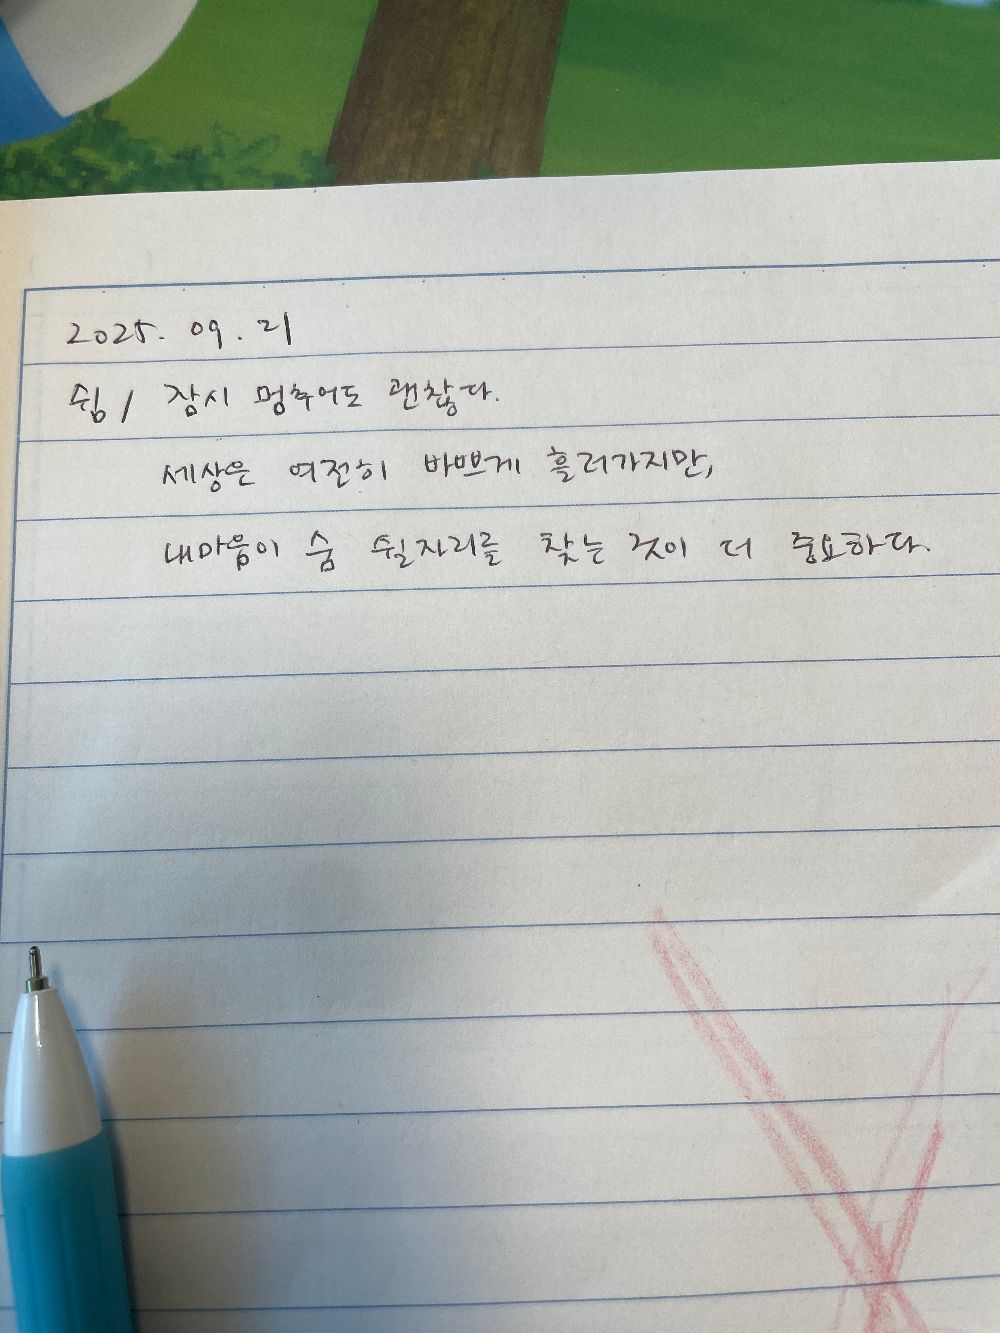 2025. 09. 21
쉼 / 잠시 멈추어도 괜찮다.
세상은 여전히 바쁘게 흘러가지만,
내마음이 숨 쉴자리를 찾는 것이 더 중요하다.